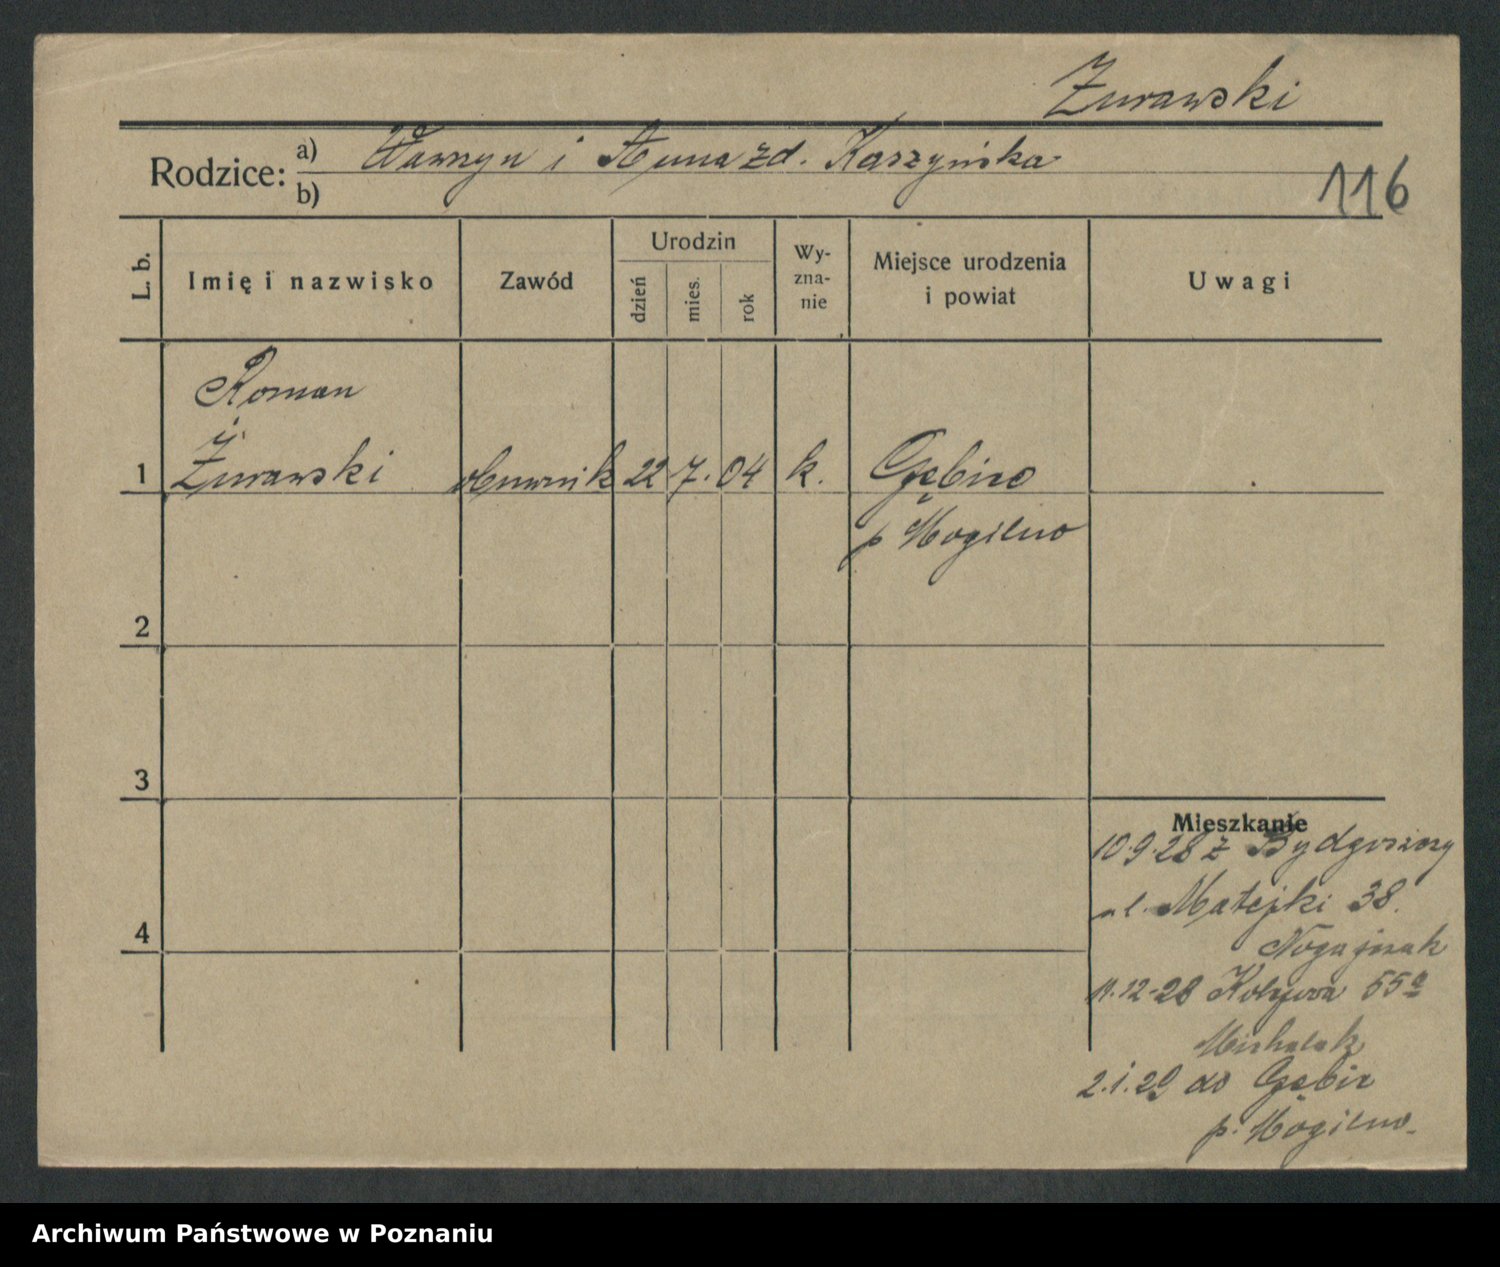 Żurawski
Rodzice: a) Wawrzyn i Anna zd. Kaszyńska
b)
116
L. b.
Imię i nazwisko
Zawód
Urodzin
dzień
mies.
rok
Wy-
zna-
nie
Miejsce urodzenia
i powiat
Uwagi
Roman
1 Żurawski obuwnik 22 7. 04 k. Gębice
p Mogilno
2
3
Mieszkanie
10.9.28 z Bydgoszczy
ul. Matejki 38.
4
11.12.28 Kolejowa 55a
Michalak
2.1.29 do Gębic
p. Mogilno.
Archiwum Państwowe w Poznaniu